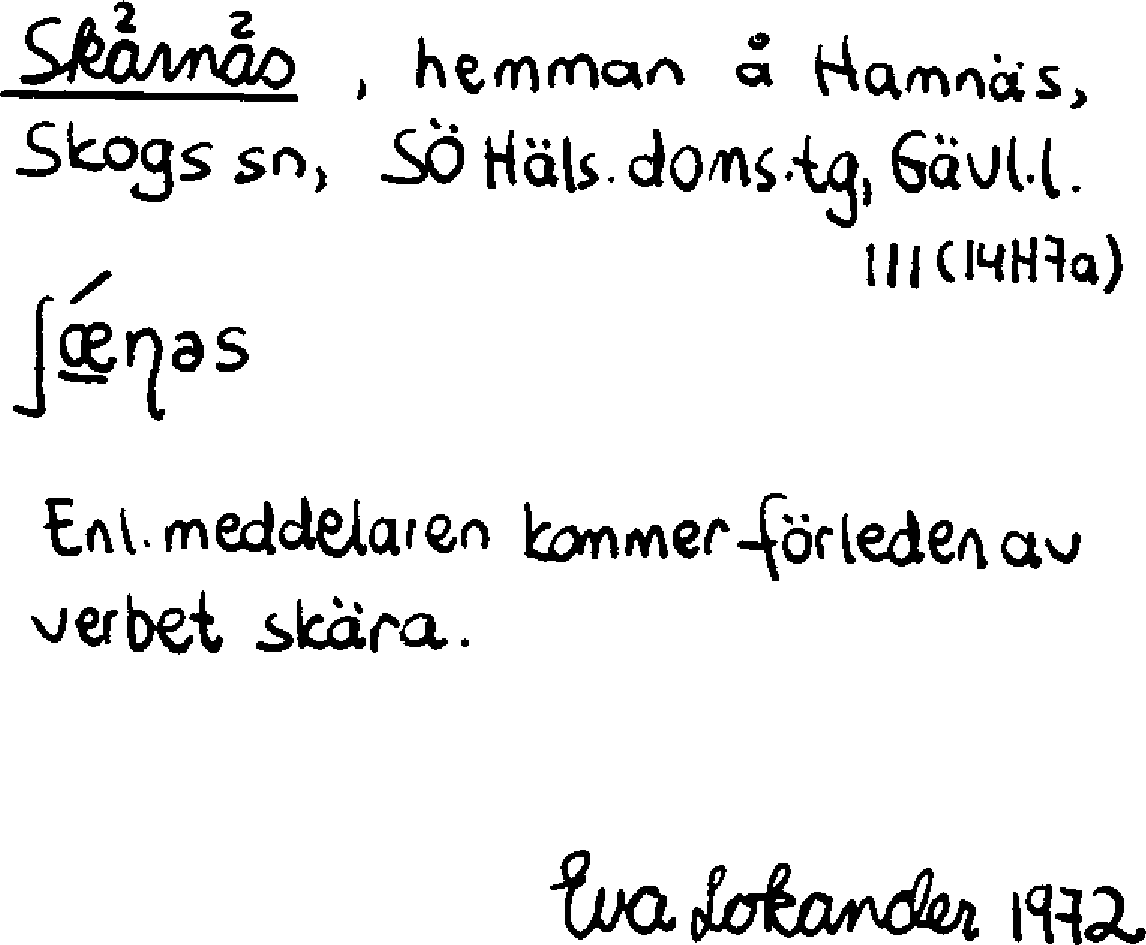 Skärnäs, hemman å Hamnäs,
Skogs sn, SÖ Häls. doms.tg, Gävl.l.
III (14H7a)
ʃǽɳəs
Enl. meddelaren kommer förleden av
verbet skära.
Eva Lokander 1972